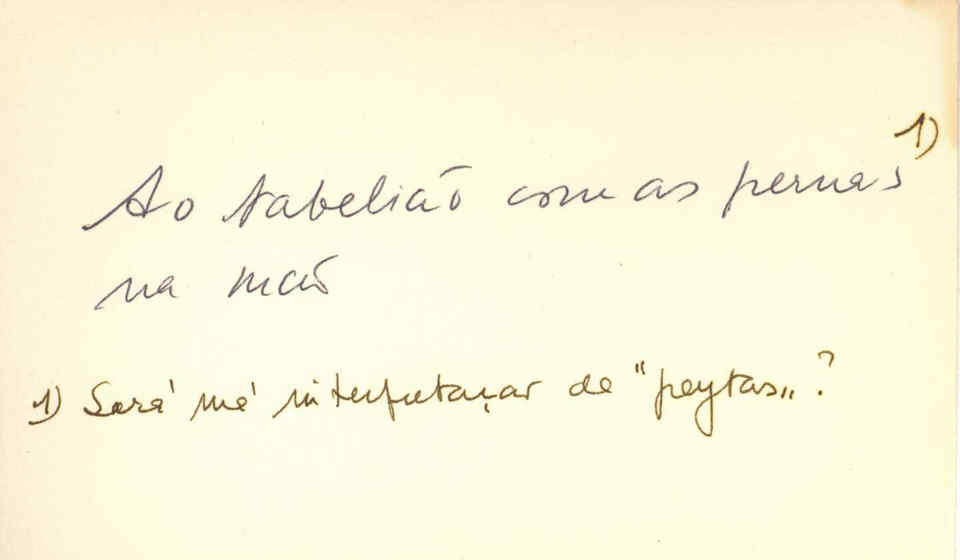 Ao tabelião com as pernas 1)
na mão
1) Será má interpretaçaõ de "peytas"?